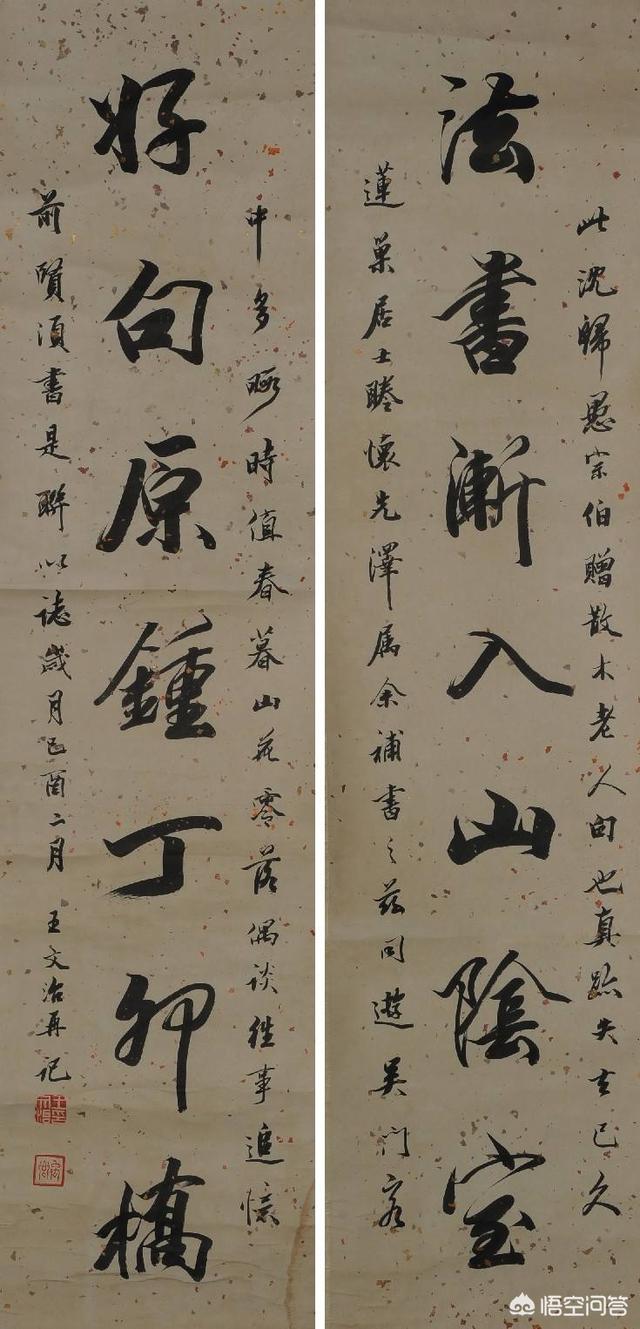 此沈歸愚宗伯贈散木老人句也真跡失去已久
法書漸入山陰室
蓮巢居士睠懷先澤属余補書之茲同遊吳門客
中多暇時值春暮山花零落偶談往事追憶
好句原鍾丁卯橋
前賢須書是聯以誌歲月己酉二月 王文治再記
悟空问答